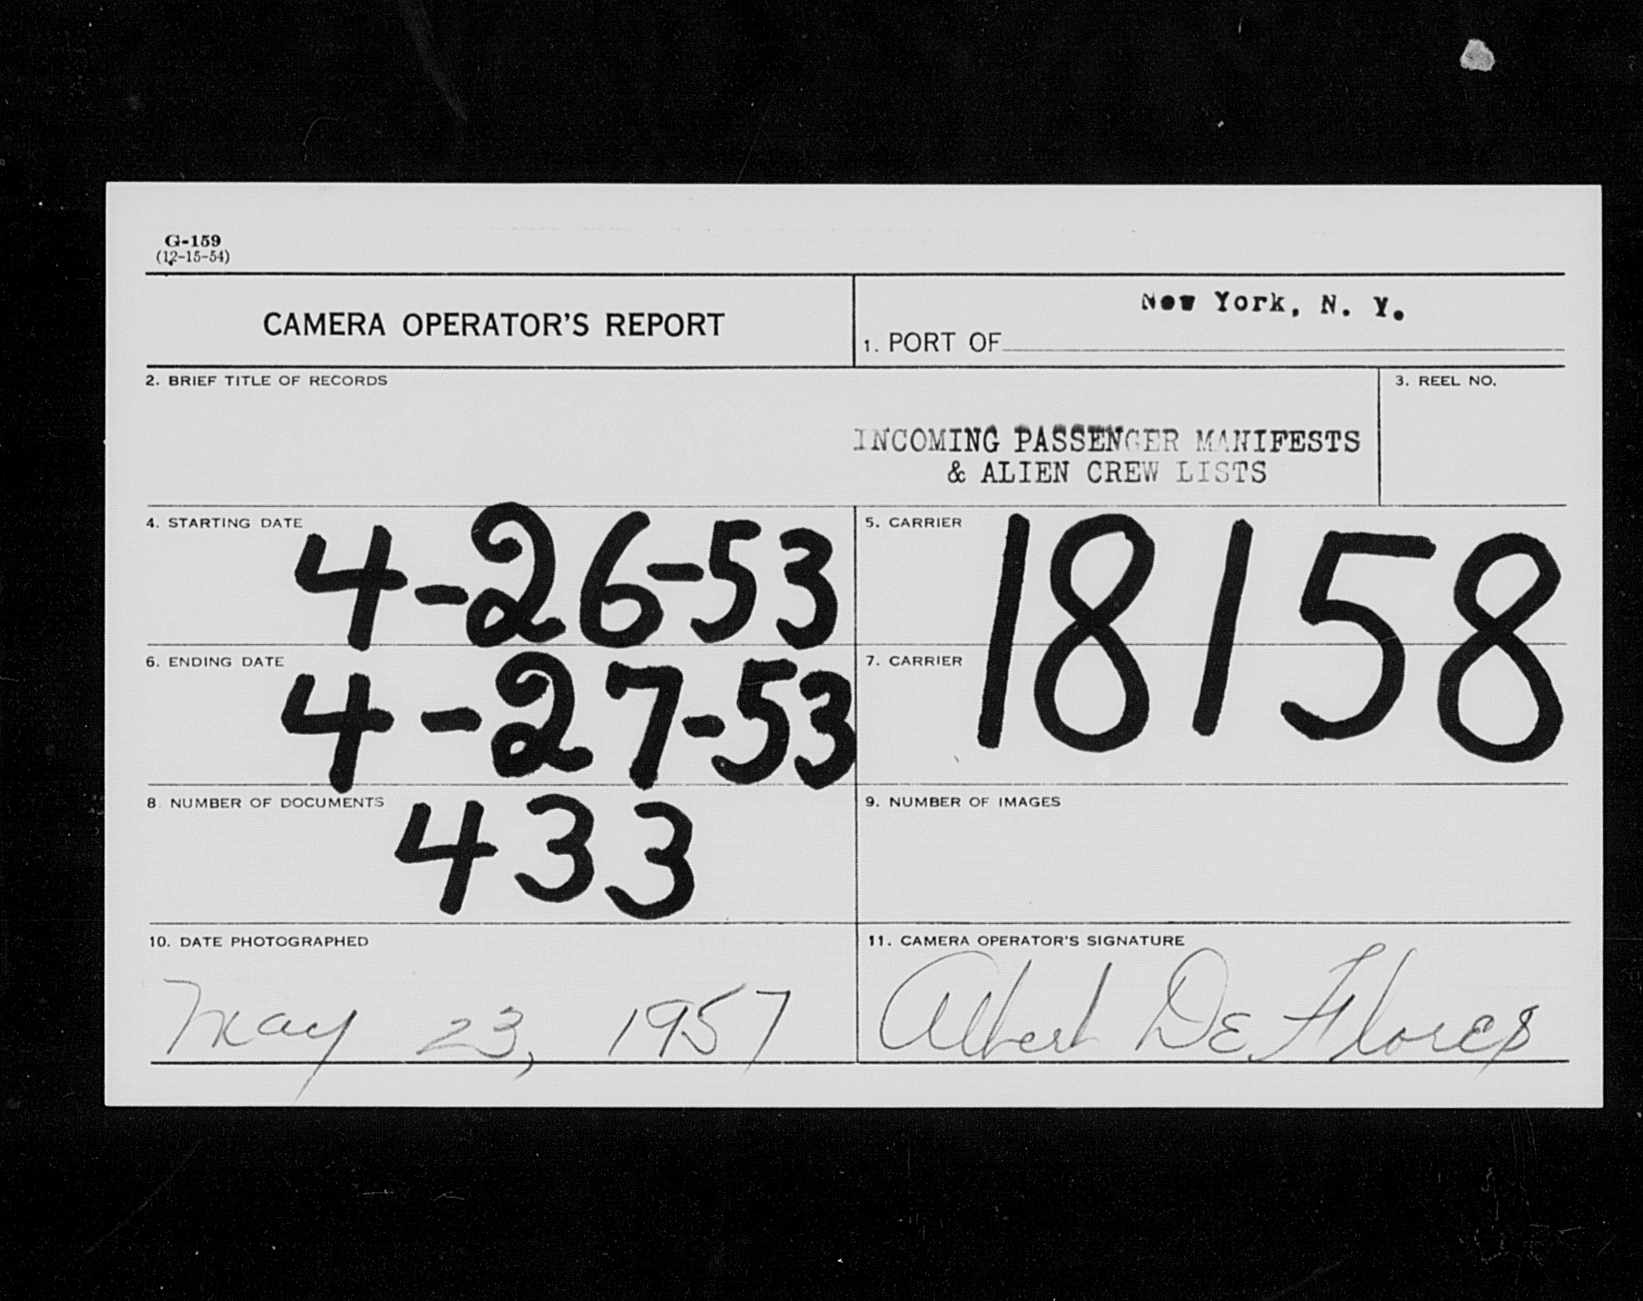 G-159
(12-15-54)
CAMERA OPERATOR'S REPORT
New York, N. Y.
1. PORT OF
2. BRIEF TITLE OF RECORDS
3. REEL NO.
INCOMING PASSENGER MANIFESTS
& ALIEN CREW LISTS
4. STARTING DATE
4-26-53
5. CARRIER
18158
6. ENDING DATE
4-27-53
7. CARRIER
8. NUMBER OF DOCUMENTS
433
9. NUMBER OF IMAGES
10. DATE PHOTOGRAPHED
May 23, 1957
11. CAMERA OPERATOR'S SIGNATURE
Albert De Flores